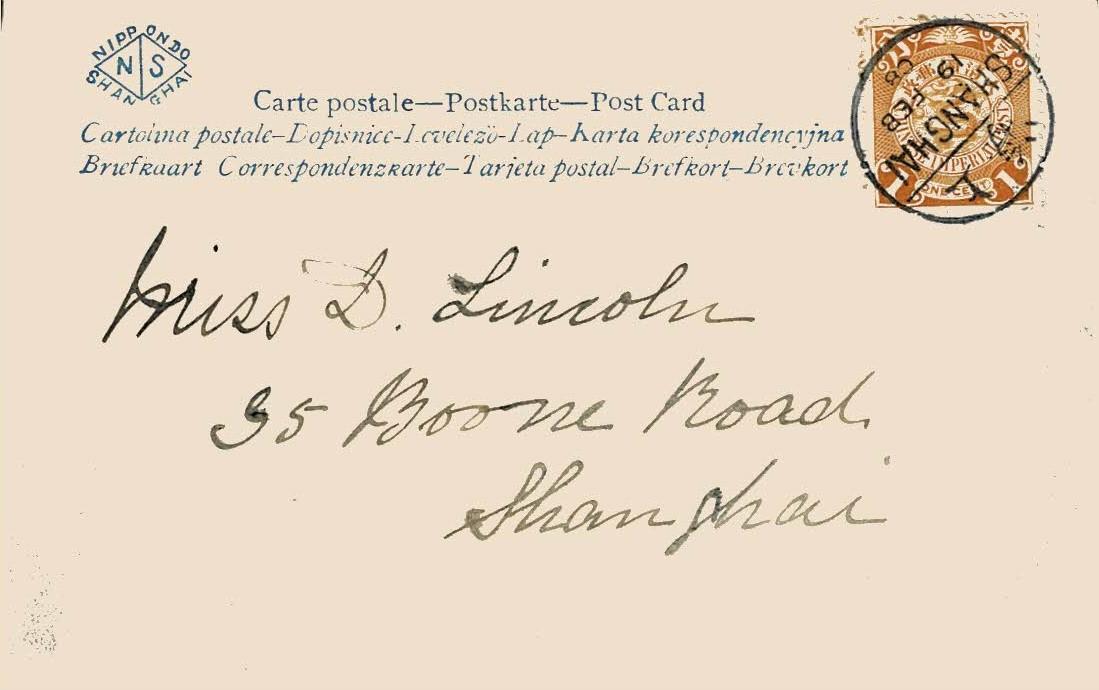 NIPPONDO
N S
SHANGHAI
Carte postale—Postkarte—Post Card
Cartolina postale–Dopisnice-Levelezö-Lap–Karta korespondencyjna
Briefkaart Correspondenzkarte–Tarjeta postal–Brefkort–Brevkort
SHANGHAI
19 FEB 08
IMPERIAL
1 ONE CENT 1
Miss D. Lincoln
35 Boone Road
Shanghai